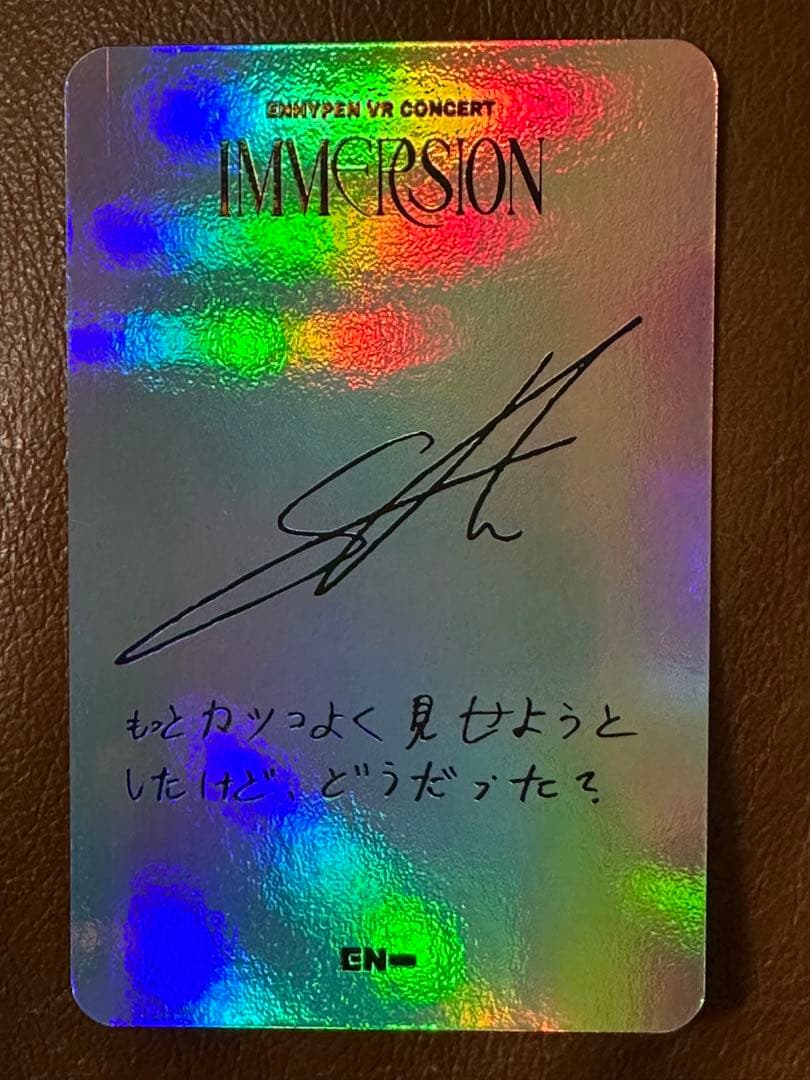 ENHYPEN VR CONCERT
IMMERSION
もっとカッコよく見せようと
したけど、どうだった?
EN-